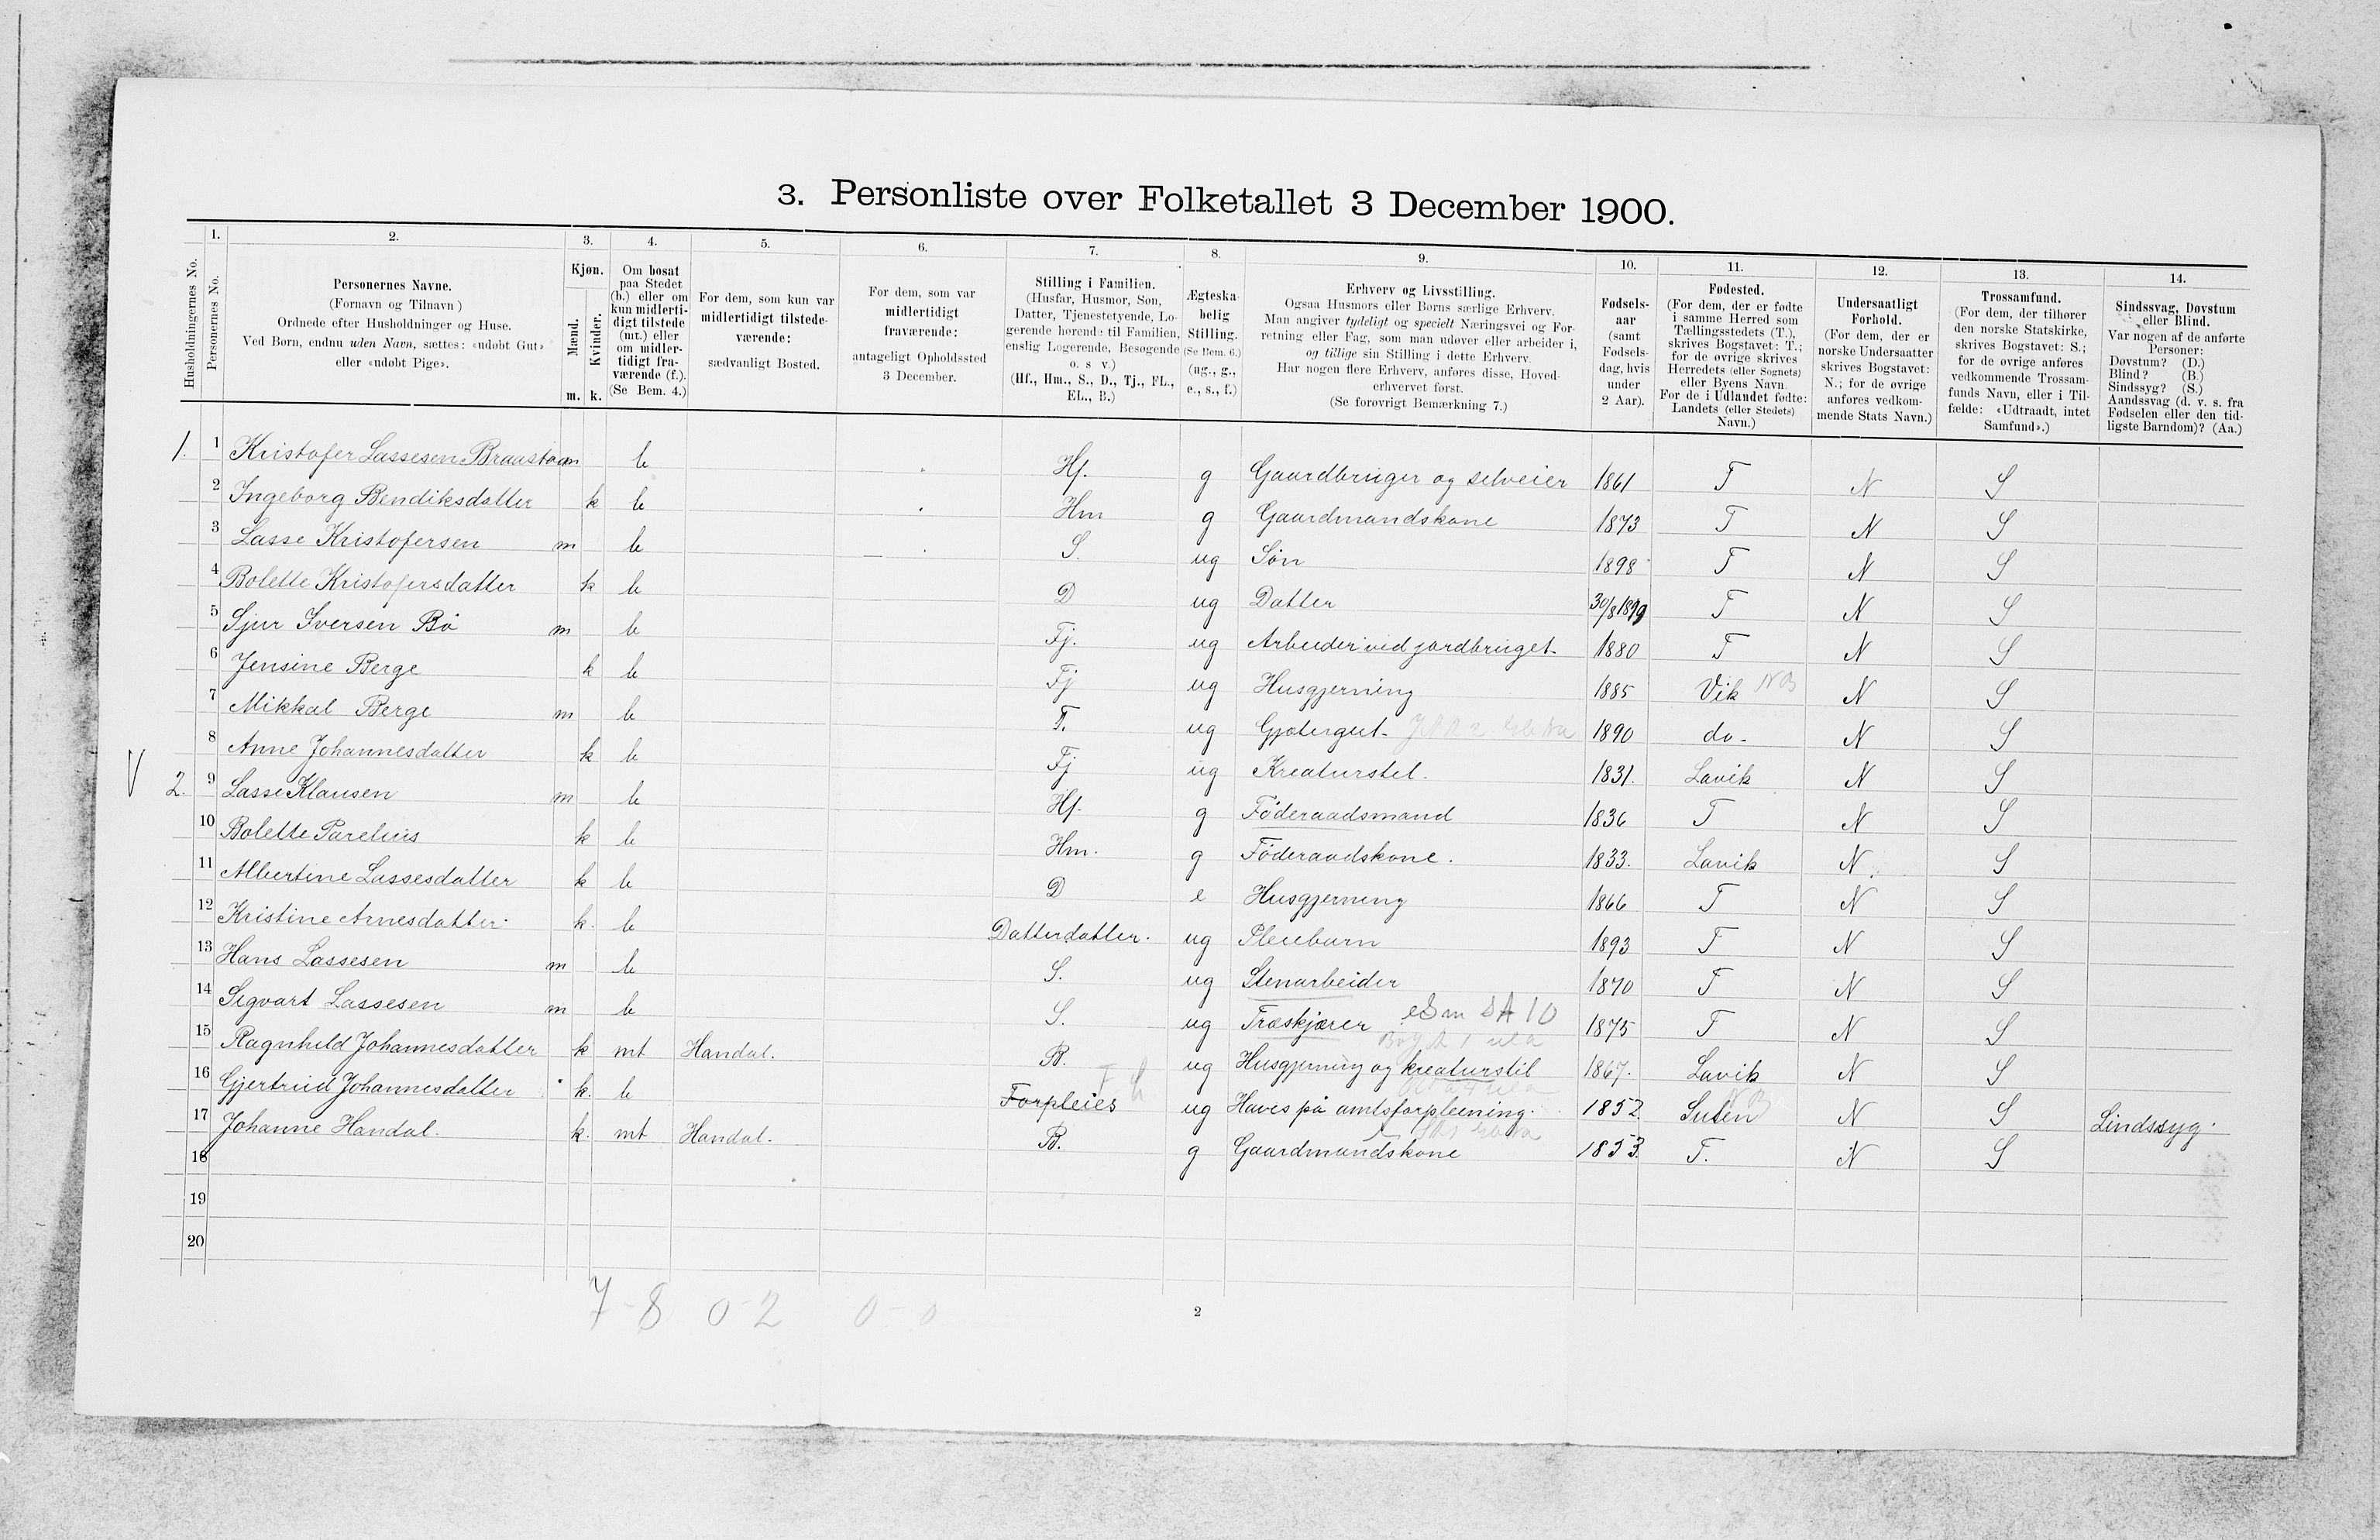 3. Personliste over Folketallet 3 December 1900.
1. 2. 3. 4. 5. 6. 7. 8. 9. 10. 11. 12. 13. 14.
Husholdningernes No.
Personernes No.
Personernes Navne.
(Fornavn og Tilnavn)
Ordnede efter Husholdninger og Huse.
Ved Børn, endnu uden Navn, sættes: «udøbt Gut»
eller «udøbt Pige».
Kjøn.
Mænd.
Kvinder.
m. k.
Om bosat
paa Stedet
(b.) eller om
kun midlerti-
digt tilstede
(mt.) eller
om midler-
tidigt fra-
værende (f.).
(Se Bem. 4.)
For dem, som kun var
midlertidigt tilstede-
værende:
sædvanligt Bosted.
For dem, som var
midlertidigt
fraværende:
antageligt Opholdssted
3 December.
Stilling i Familien.
(Husfar, Husmor, Søn,
Datter, Tjenestetyende, Lo-
gerende hørende til Familien,
enslig Logerende, Besøgende
o. s v.)
(Hf., Hm., S., D., Tj., FL.,
EL., B.)
Ægteska-
belig
Stilling.
(Se Bem. 6.)
(ug., g.,
e., s., f.)
Erhverv og Livsstilling.
Ogsaa Husmors eller Børns særlige Erhverv.
Man angiver tydeligt og specielt Næringsvei og For-
retning eller Fag, som man udøver eller arbeider i,
og tillige sin Stilling i dette Erhverv.
Har nogen flere Erhverv, anføres disse, Hoved-
erhvervet først.
(Se forøvrigt Bemærkning 7.)
Fødsels-
aar
(samt
Fødsels-
dag, hvis
under
2 Aar).
Fødested.
(For dem, der er fødte
i samme Herred som
Tællingsstedets (T.),
skrives Bogstavet: T.;
for de øvrige skrives
Herredets (eller Sognets)
eller Byens Navn.
For de i Udlandet fødte:
Landets (eller Stedets)
Navn.)
Undersaatligt
Forhold.
(For dem, der er
norske Undersaatter
skrives Bogstavet:
N.; for de øvrige
anføres vedkom-
mende Stats Navn.)
Trossamfund.
(For dem, der tilhører
den norske Statskirke,
skrives Bogstavet: S.;
for de øvrige anføres
vedkommende Trossam-
funds Navn, eller i Til-
fælde: «Udtraadt, intet
Samfund».)
Sindssvag, Døvstum
eller Blind.
Var nogen af de anførte
Personer:
Døvstum? (D.)
Blind? (B.)
Sindssyg? (S.)
Aandssvag (d. v. s. fra
Fødselen eller den tid-
ligste Barndom)? (Aa.)
1. 1 Kristofer Lassesen Braastøa m b Hf. g Gaardbruger og selveier 1861 T N S
2 Ingeborg Bendiksdatter k b Hm g Gaardmandskone 1873 T N S
3 Lasse Kristofersen m b S. ug Søn 1898 T N S
4 Bolette Kristofersdatter k b D ug Datter 30/8 1899 T N S
5 Sjur Iversen Bö m b Tj. ug Arbeider ved jordbruget 1880 T N S
6 Jensine Berge k b Tj ug Husgjerning 1885 Vik NB N S
7 Mikkal Berge m b T. ug Gjætergut 1890 do - N S
8 Anne Johannesdatter k b Tj ug Kreaturstel. 1831. Lavik N S
2. 9 Lasse Klausen m b Hf. g Föderaadsmand 1836 T N S
10 Bolette Parelius k b Hm. g Föderaadskone. 1833. Lavik N. S
11 Albertine Lassesdatter k b D e Husgjerning 1866 T N S
12 Kristine Arnesdatter. k. b Datterdatter. ug Pleiebarn 1893 T N S
13 Hans Lassesen m b S. ug Stenarbeider 1870 T N S
14 Sigvart Lassesen m b S. ug Træskjærer 1875 T N S
15 Ragnhild Johannesdatter k mt Handal. B. ug Husgjerning og kreaturstel 1867. Lavik N S
16 Gjertrud Johannesdatter k. b Forpleies ug Haves på amtsforpleining. 1852 Sulen N S Sindssyg.
17 Johanne Handal. k. mt Handal. B. g Gaardmandskone 1853. T. N S
18
19
20
7 - 8 0 - 2 0 - 0
2